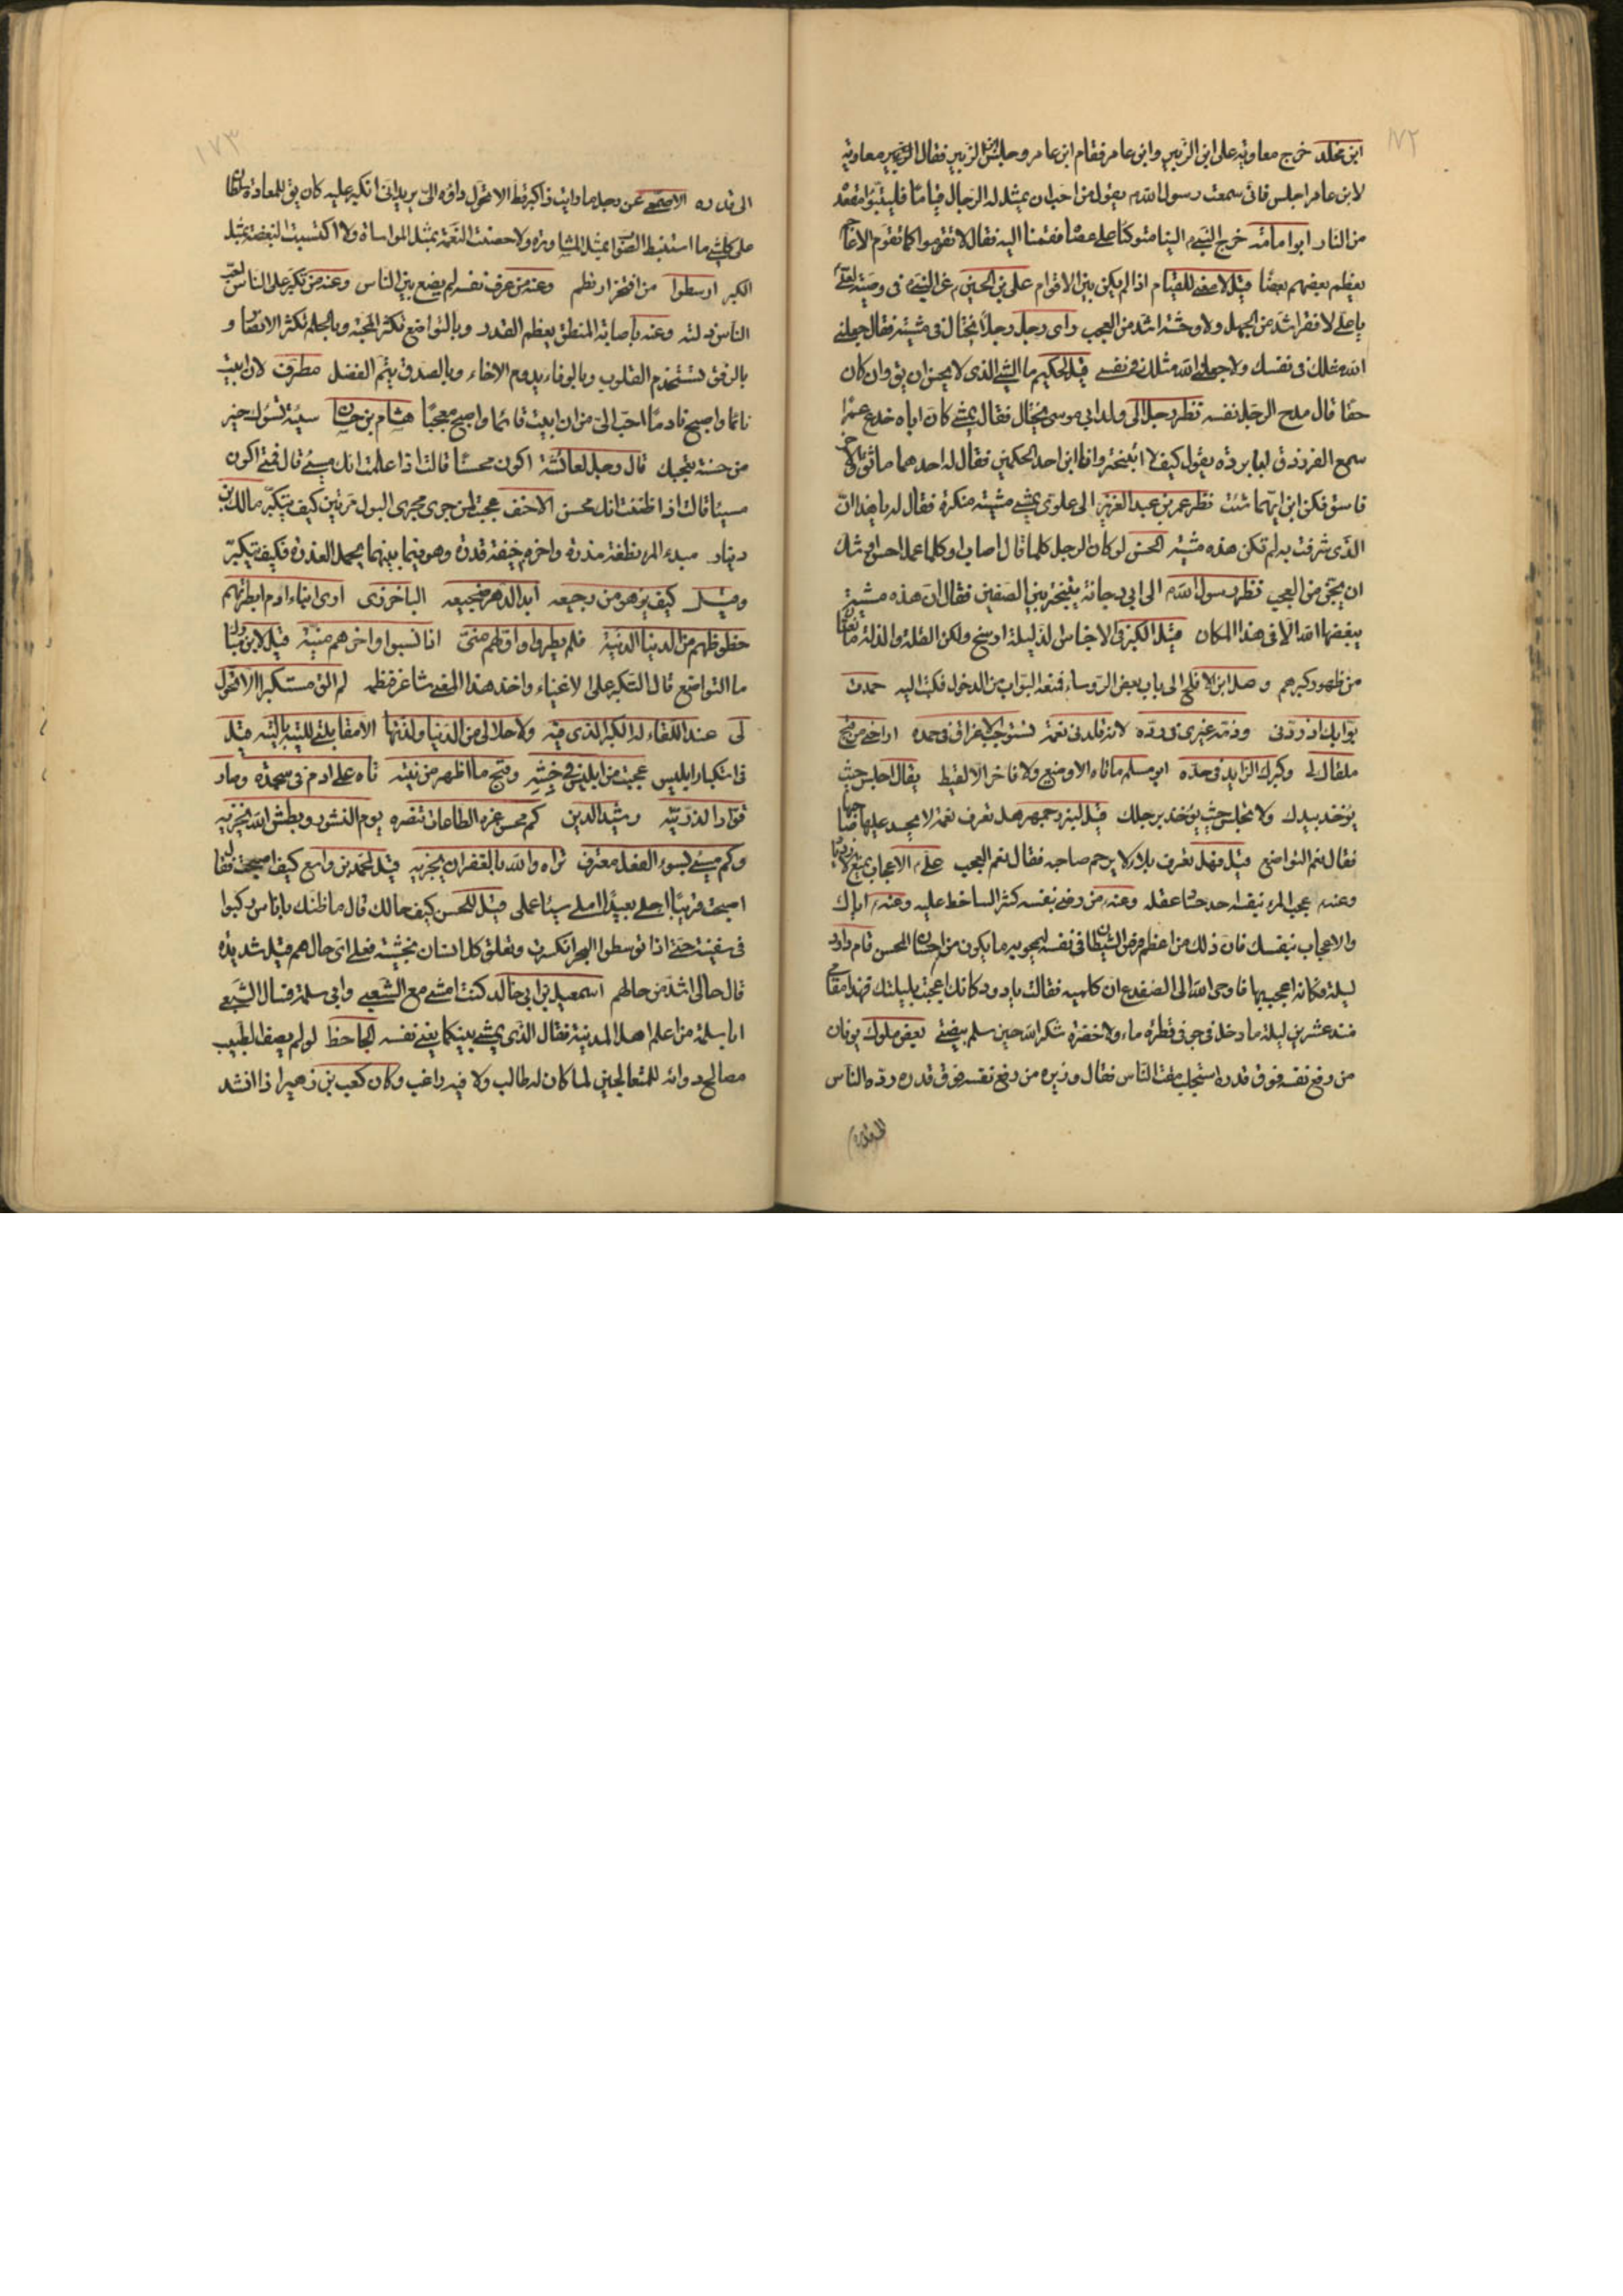 ١٧٢
ابن مخلد خرج معاوية على ابن الزبير وابن عامر فقام ابن عامر وجلس ابن الزبير فقال معاوية
لابن عامر اجلس فانى سمعت رسول الله يقول من احب ان يمثل له الرجال قياما فليتبوأ مقعده
من النار ابوا مامة خرج النبى الينا متوكئا على عصا فقمنا اليه فقال لا تقوموا كما تقوم الاعاجم
يعظم بعضهم بعضا قيل لا معنى للقيام اذا لم يكن بين الاقوام على بن الحسين عن النبى فى وصيته لعلى
يا على لا فقر اشد من الجهل ولا وحشة اشد من العجب راى رجل رجلا يختال فى مشيته فقال جعلنى
الله مثلك فى نفسك ولا جعلنى الله مثلك فى نفسى قيل لحكيم ما الشئ الذى لا يحسن ان يق وان كان
حقا قال مدح الرجل نفسه نظر رجل الى ولد ابى موسى يختال فقال يمشى كان اباه خدع عمرا
سمع الفرزدق ابا بردة يقول كيف لا اتبختر وانا ابن احد الحكمين فقال له احدهما مائق والاخر
فاسق فكن ابن ايهما شئت نظر عمر بن عبد العزيز الى علوى يمشى مشية منكرة فقال له يا هذا ان
الذى شرفت به لم تكن هذه مشيته الحسن لو كان الرجل كلما قال اصاب وكلما عمل احسن اوشك
ان يجن من العجب نظر رسول الله الى ابى دجانة يتبختر بين الصفين فقال ان هذه مشية
يبغضها الله الا فى هذا المكان قيل الكبر فى الاجناس الذليلة ارسخ ولكن القلة والذلة مانعتان
من ظهور كبرهم وصل ابن الافلح الى باب بعض الروساء فمنعه البواب من الدخول فكتب اليه حمدت
بوابك اذ ردنى وذمه غيرى فى رده لانه قلدنى نعمة تستوجب الاغراق فى حمده اراحنى من قبح
ملقاك لى وكبرك الزايد فى حده ابو مسلم ما تاه الا وضيع ولا فاخر الا لقيط يقال اجلس حيث
يؤخذ بيدك ولا تجلس حيث يؤخذ برجلك قيل لبزرجمهر هل تعرف نعمة لا يحسد عليها صاحبها
فقال نعم التواضع قيل فهل تعرف بلاء لا يرحم صاحبه فقال نعم العجب على الاعجاب يمنع الازدياد
وعنه عجب المرء بنفسه احد حساد عقله وعنه من رضى بنفسه كثر الساخط عليه وعنه اياك
والاعجاب بنفسك فان ذلك من اعظم فرص الشيطان فى نفسه ليمحو به ما يكون من احسان المحسن قام داود
ليلة فكانه اعجب بها فاوحى الله الى الضفدع ان كلميه فقالت يا داود كانك اعجبت بليلتك فهذا مقامى
منذ عشرين ليلة ما دخل فى جوفى قطرة ماء ولا خضرة شكرا لله حين سلم بيضتى بعض ملوك يونان
من رفع نفسه فوق قدره استجلب مقت الناس فقال وزيره من رفع نفسه فوق قدره رده الناس
١٧٣
الى قدره الاصمعى عن رجل ما رايت ذا كبر قط الا تحول داؤه الى يريد انى اتكبر عليه كان يق للعادة سلطان
على كل شئ ما استنبط الصواب بمثل المشاورة ولا حصنت النعم بمثل المواساة ولا اكتسبت البغضة بمثل
الكبر ارسطوا من افتخر ارتطم وعنه من عرف نفسه لم يضع بين الناس وعنه من تكبر على الناس احب
الناس ذلته وعنه باصابة المنطق يعظم القدر وبالتواضع تكثر المحبة وبالحلم تكثر الانصار و
بالرفق تستخدم القلوب وبالوفاء يدوم الاخاء وبالصدق يتم الفضل مطرف لان ابيت
نائما واصبح نادما احب الى من ان ابيت قائما واصبح معجبا هشام بن حسان سيئة تسؤك خير
من حسنة تعجبك قال رجل لعائشة متى اكون محسنا قالت اذا علمت انك مسئ قال فمتى اكون
مسيئا قالت اذا ظننت انك محسن الاحنف عجبت لمن جرى مجرى البول مرتين كيف يتكبر مالك بن
دينار مبدء المرء نطفة مذرة واخره جيفة قذرة وهو فيما بينهما يحمل العذرة فكيف يتكبر
وقيل كيف يزهو من رجيعه ابد الدهر ضجيعه الباخرزى ارى ابناء ادم ابطرتهم
حظوظهم من الدنيا الدنية فلم بطروا واولهم منى اذا نسبوا واخرهم منية قيل لابن مبارك
ما التواضع قال التكبر على الاغنياء واخذ هذا المعنى شاعر فنظمه لم الق مستكبرا الا تحول
لى عند اللقاء له الكبر الذى فيه ولا حلا لى من الدنيا ولذتها الا مقابلتى للتيه بالتيه قيل
فى استكبار ابليس عجبت من ابليس فى خبثه وقبح ما اظهر من نيته تاه على ادم فى سجدة وصار
قوادا لذريته رشيد الدين كم محسن غره الطاعات تنصره يوم النشور وبطش الله يخزيه
وكم مسئ بسوء الفعل معترف تراه والله بالغفران يجزيه قيل لمحمد بن واسع كيف اصبحت فقال
اصبحت قريبا اجلى بعيدا املى سيئا عملى قيل للحسن كيف حالك قال ما ظنك باناس ركبوا
فى سفينة حتى اذا توسطوا البحر انكسرت وتعلق كل انسان بخشبة فعلى اى حال هم قيل شديدة
قال حالى اشد من حالهم اسمعيل بن ابى خالد كنت امشى مع الشعبى وابى سلمة فسال الشعبى
ابا سلمة من اعلم اهل المدينة فقال الذى يمشى بينكما يعنى نفسه الجاحظ لو لم يصف الطبيب
مصالح دوائه للمتعالجين لما كان له طالب ولا فيه راغب وكان كعب بن زهير اذا انشد